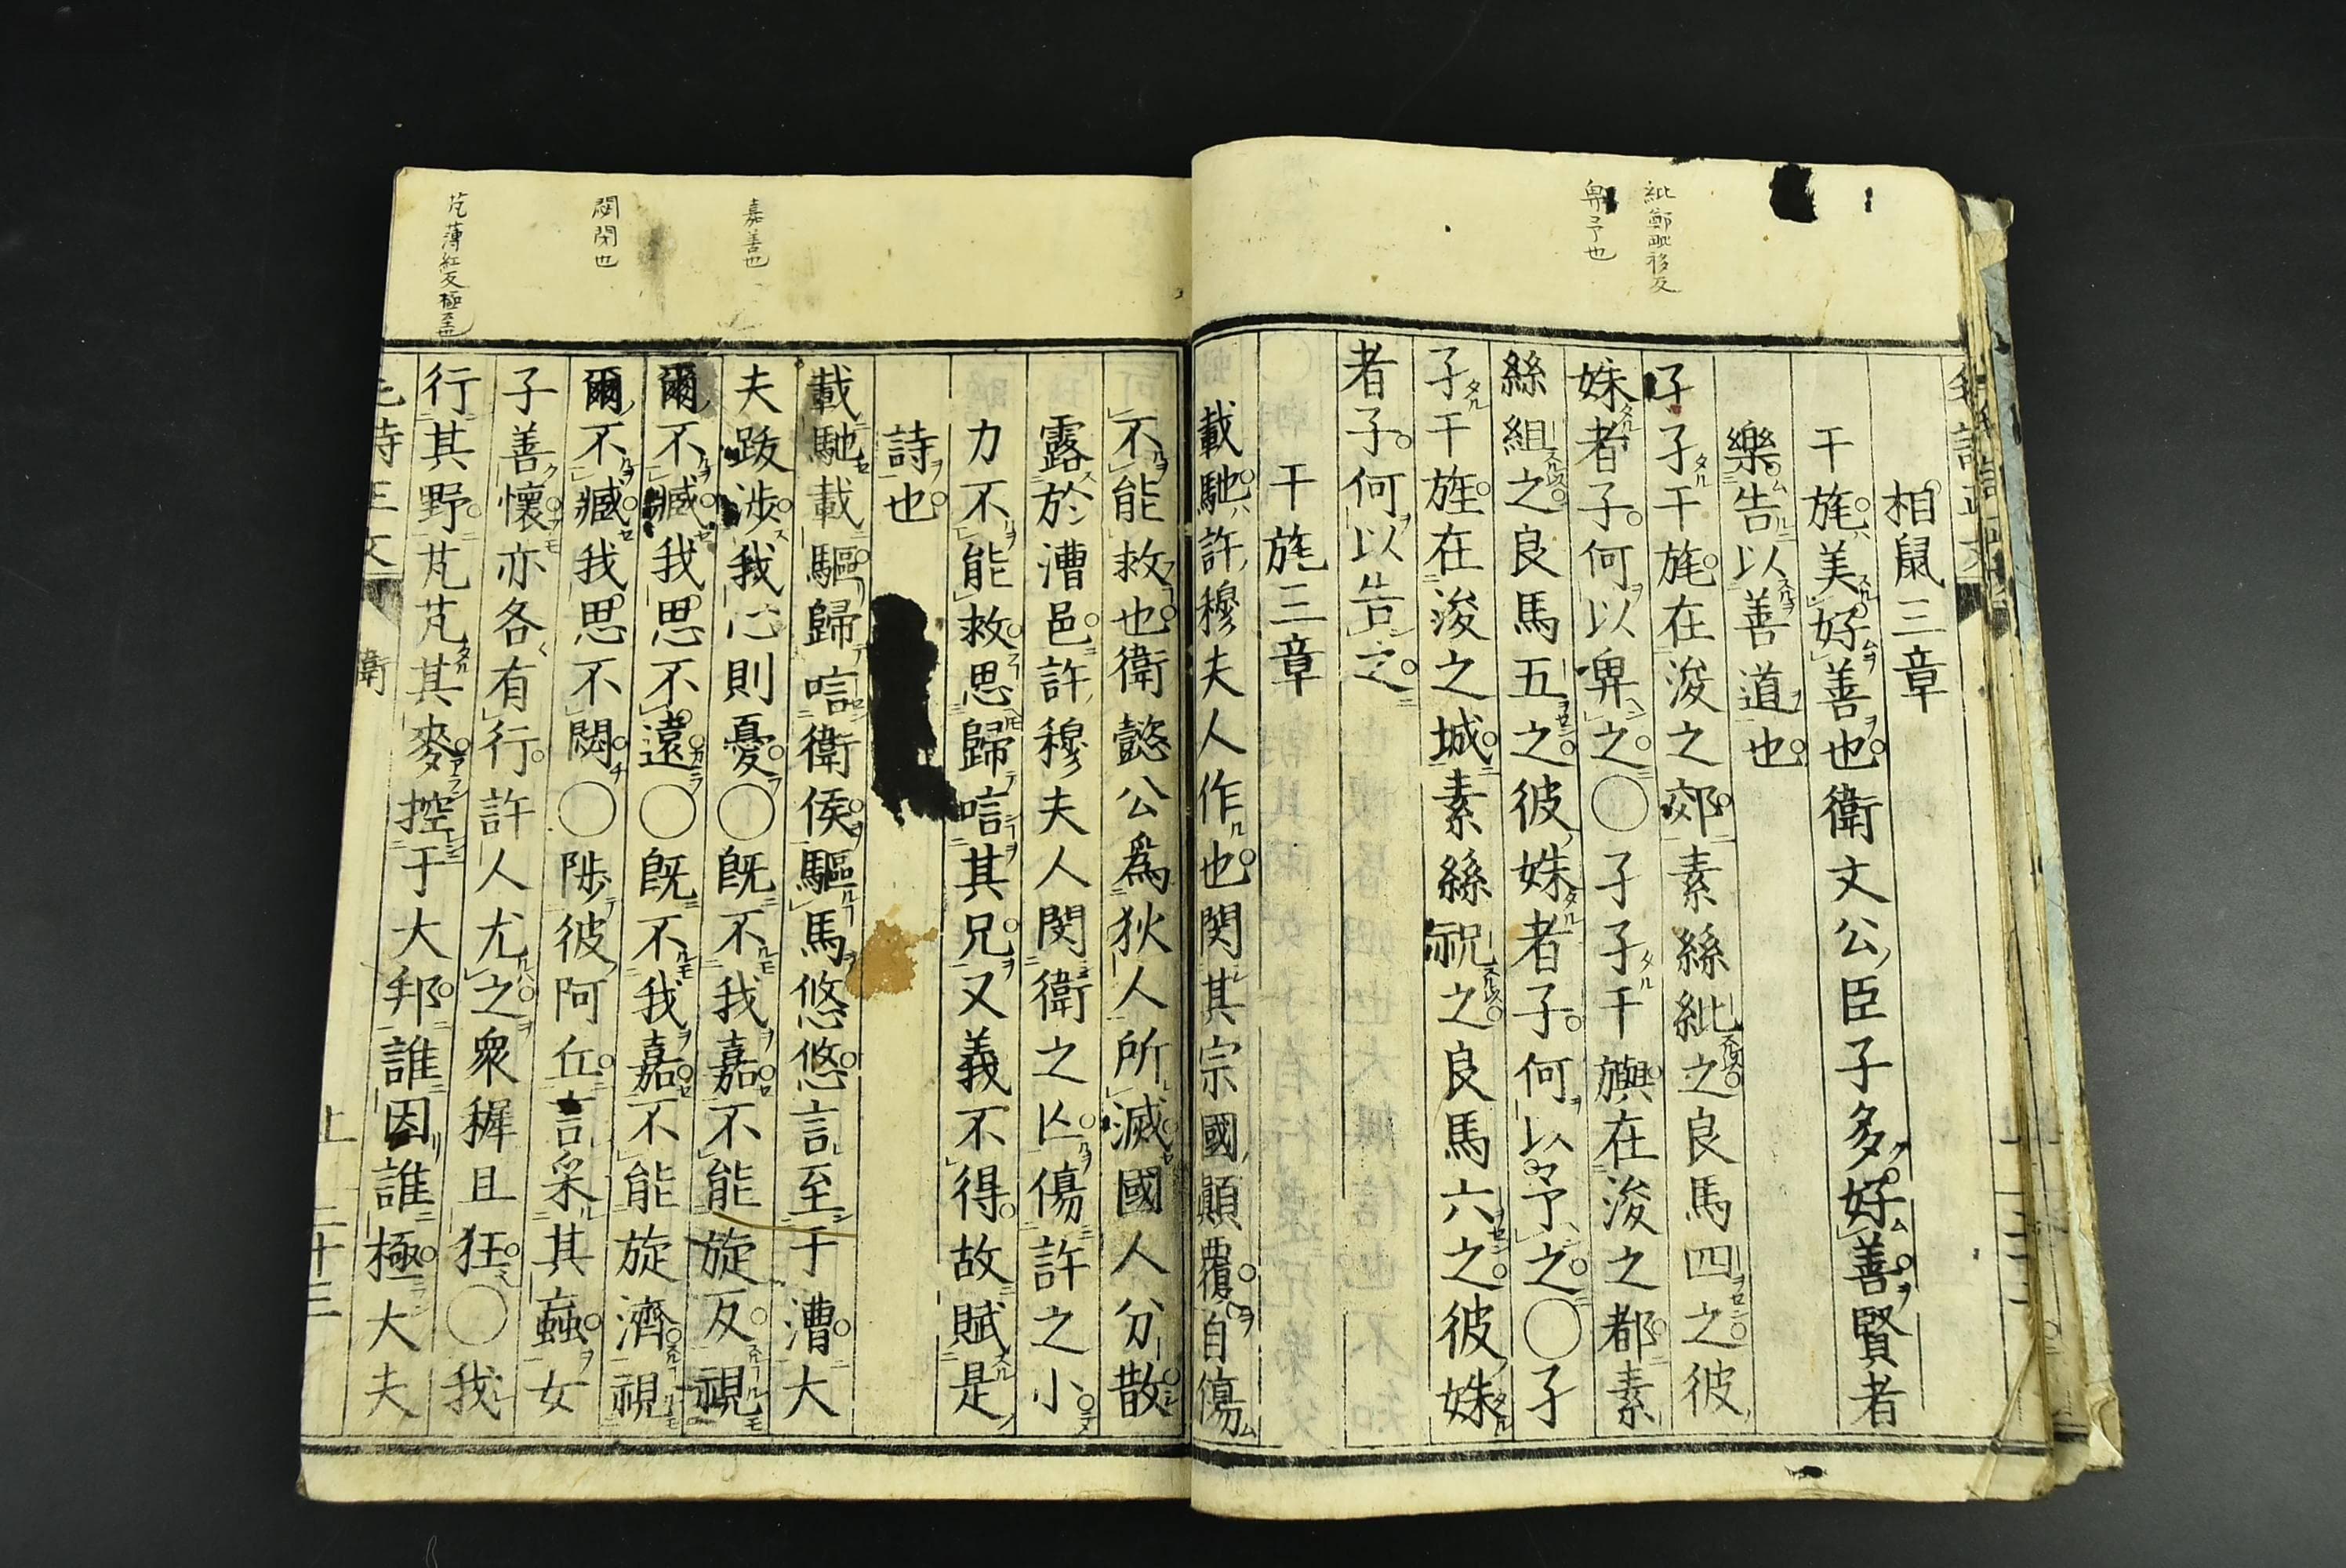 紕鄭毗移反
畀予也
相鼠三章
干旄美好善也衛文公臣子多好善賢者
樂告以善道也
孑孑干旄在浚之郊素絲紕之良馬四之彼
姝者子何以畀之〇孑孑干旟在浚之都素
絲組之良馬五之彼姝者子何以予之〇孑
孑干旌在浚之城素絲祝之良馬六之彼姝
者子何以告之
干旄三章
載馳許穆夫人作也閔其宗國顛覆自傷
不能救也衛懿公爲狄人所滅國人分散
露於漕邑許穆夫人閔衛之亾傷許之小
力不能救思歸唁其兄又義不得故賦是
詩也
載馳載驅歸唁衛侯驅馬悠悠言至于漕大
夫跋涉我心則憂〇旣不我嘉不能旋反視
爾不臧我思不遠〇旣不我嘉不能旋濟視
爾不臧我思不閟〇陟彼阿丘言采其蝱女
子善懷亦各有行許人尤之衆穉且狂〇我
行其野芃芃其麥控于大邦誰因誰極大夫
嘉善也
閟閉也
芃薄紅反極至也
毛詩正文
衛
上
二十三